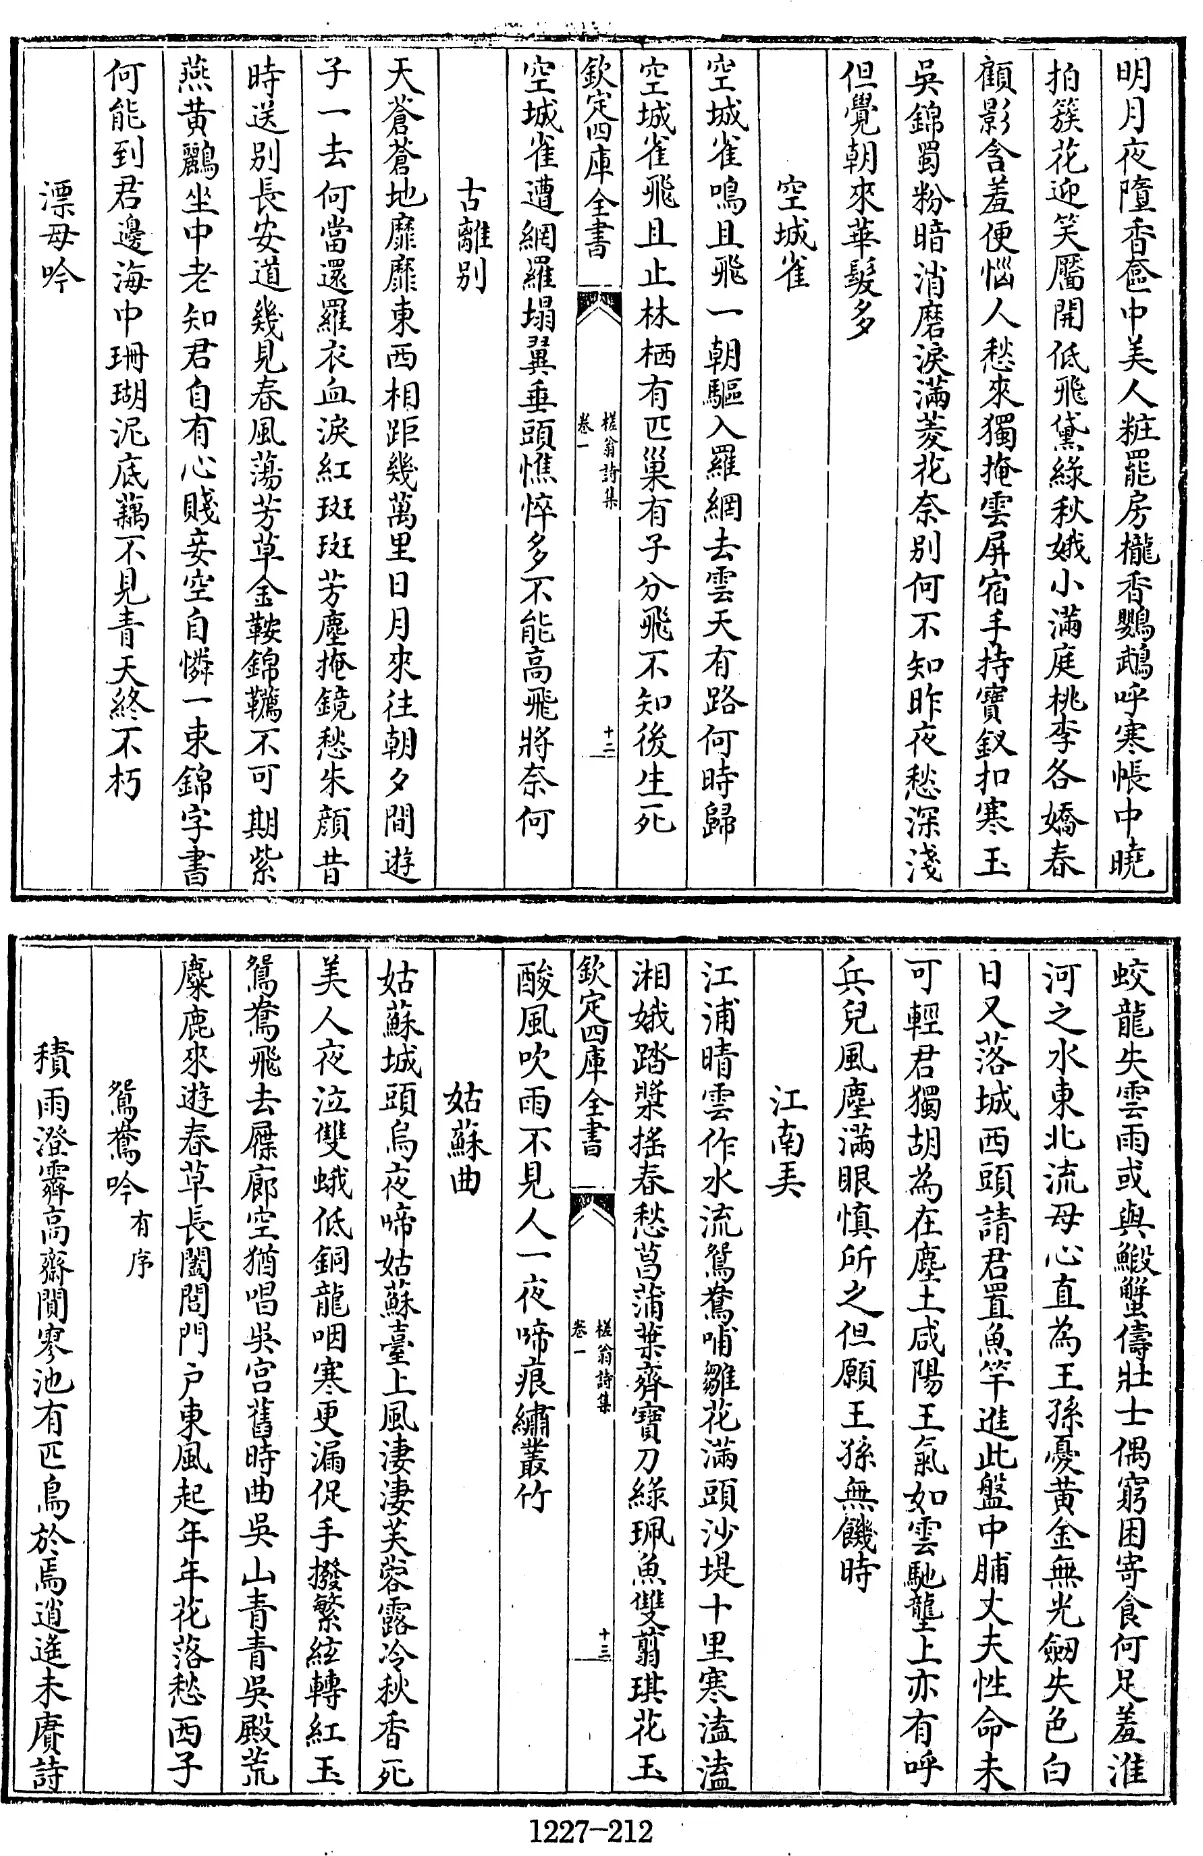 明月夜墮香奩中美人粧罷房櫳香鸚鵡呼寒帳中曉
拍簇花迎笑靨開低飛黛綠秋娥小滿庭桃李各嬌春
顧影含羞便惱人愁來獨掩雲屏宿手持寶釵扣寒玉
吳錦蜀粉暗消磨淚滿菱花奈别何不知昨夜愁深淺
但覺朝來華髮多
空城雀
空城雀鳴且飛一朝驅入羅網去雲天有路何時歸
空城雀飛且止林栖有匹巢有子分飛不知後生死
欽定四庫全書
槎翁詩集
卷一
十二
空城雀遭網羅塌翼垂頭憔悴多不能高飛將奈何
古離别
天蒼蒼地靡靡東西相距幾萬里日月來往朝夕間遊
子一去何當還羅衣血淚紅斑斑芳塵掩鏡愁朱顔昔
時送别長安道幾見春風蕩芳草金鞍錦韉不可期紫
燕黄鸝坐中老知君自有心賤妾空自憐一束錦字書
何能到君邊海中珊瑚泥底藕不見青天終不朽
漂母吟
蛟龍失雲雨或與鰕蟹儔壯士偶窮困寄食何足羞淮
河之水東北流母心直為王孫憂黄金無光劒失色白
日又落城西頭請君置魚竿進此盤中脯丈夫性命未
可輕君獨胡為在塵土咸陽王氣如雲馳壟上亦有呼
兵兒風塵滿眼慎所之但願王孫無饑時
江南弄
江浦晴雲作水流鴛鴦哺雛花滿頭沙堤十里寒溘溘
湘娥踏槳搖春愁菖蒲葉齊寶刀綠珮魚雙翦琪花玉
欽定四庫全書
槎翁詩集
卷一
十三
酸風吹雨不見人一夜啼痕繡叢竹
姑蘇曲
姑蘇城頭烏夜啼姑蘇臺上風淒淒芙蓉露冷秋香死
美人夜泣雙蛾低銅龍咽寒更漏促手撥繁絃轉紅玉
鴛鴦飛去屧廊空猶唱吳宫舊時曲吳山青青吳殿荒
麋鹿來遊春草長闔閭門户東風起年年花落愁西子
鴛鴦吟有序
積雨澄霽高齋閒寥池有匹鳥於焉逍遙未賡詩
1227-212